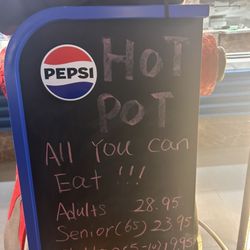 PEPSI
HOT
POT
All You can
Eat !!!
Adults 28.95
Senior (65) 23.95
(5-10) 19.95